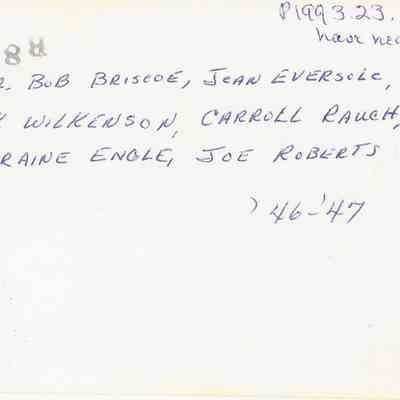 P1993.23.
have neg
88
R. BOB BRISCOE, JEAN EVERSOLE,
WILKENSON, CARROLL RAUCH,
RAINE ENGLE, JOE ROBERTS
'46-'47